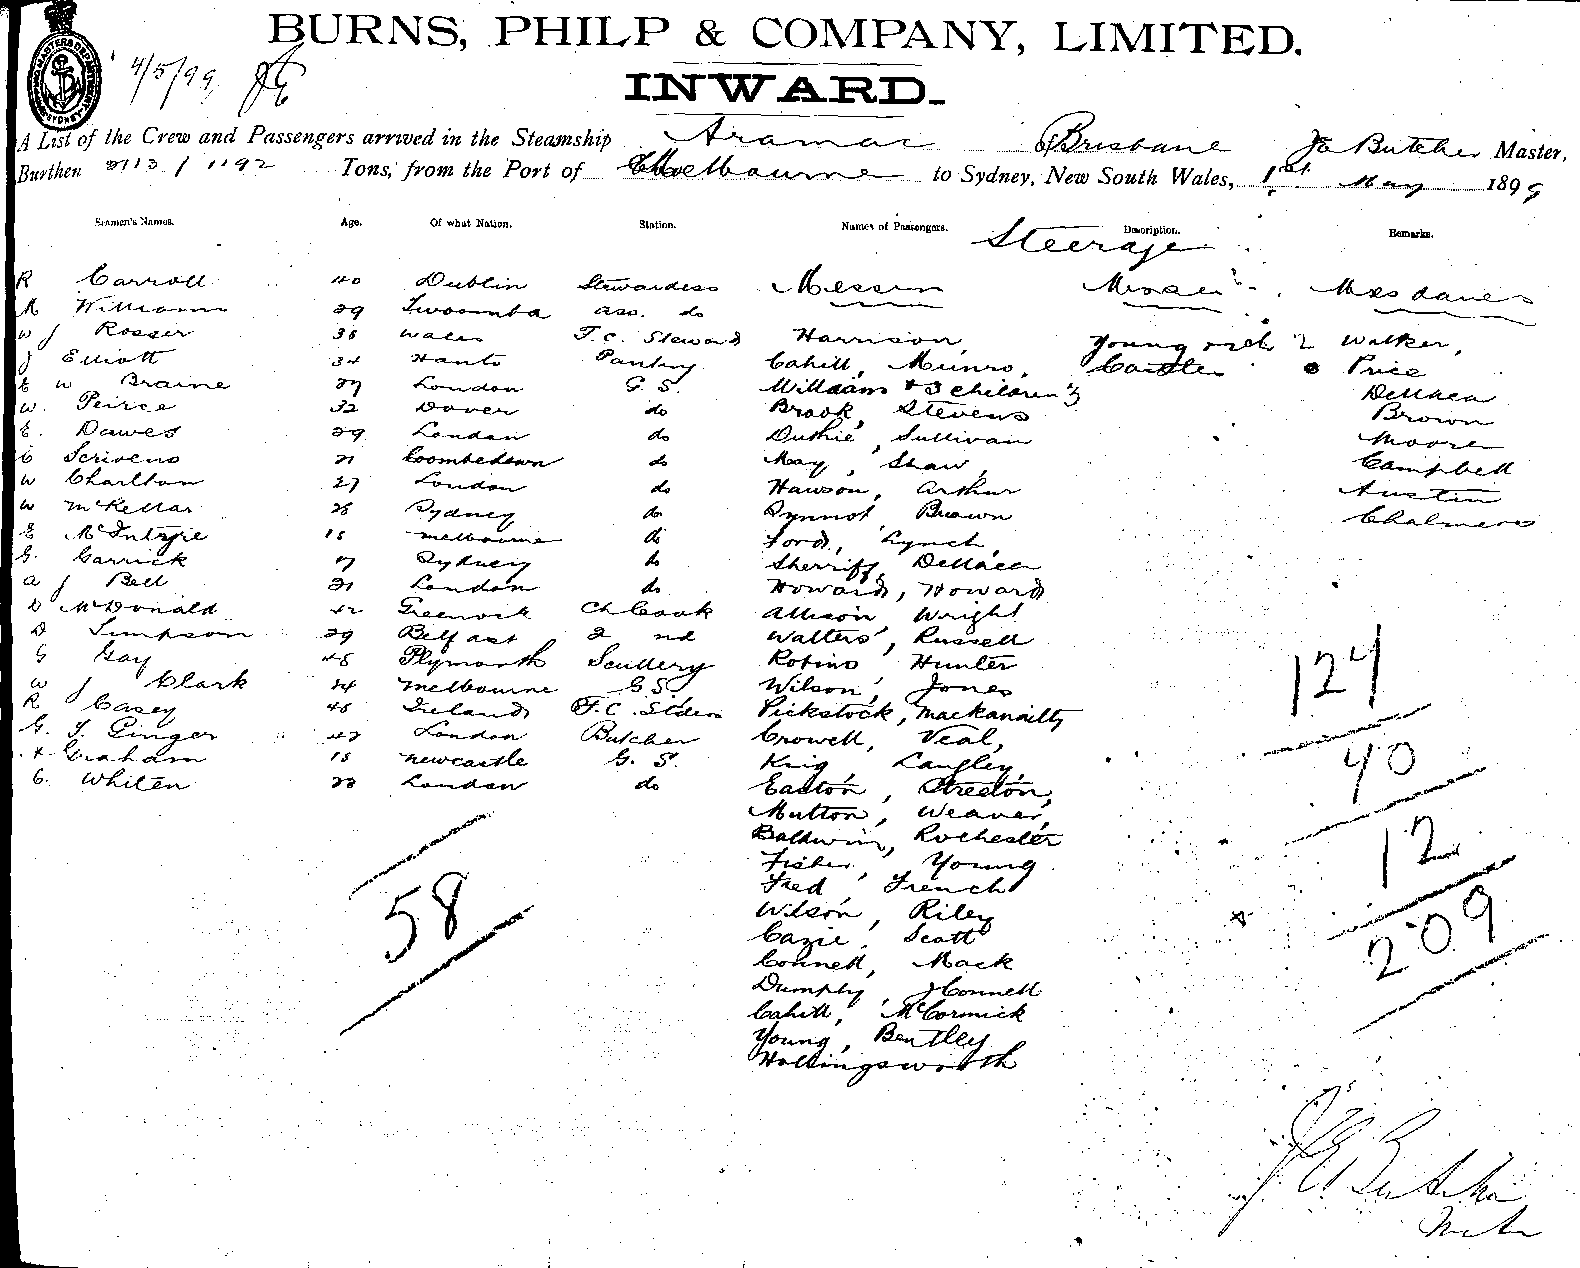 BURNS, PHILP & COMPANY, LIMITED.
4/5/99
INWARD.
A List of the Crew and Passengers arrived in the Steamship Aramac of Brisbane Butcher Master,
Burthen 2113 / 1192 Tons, from the Port of Melbourne to Sydney, New South Wales, 1st May 1899
Seamen's Names. Age. Of what Nation. Station. Names of Passengers. Description. Remarks.
Steerage
R Carroll 40 Dublin Stewardess Messrs Misses Mesdames
M Williams 29 Twoomba ass. do
W J Rosser 38 Wales F.C. Steward Harrison, Young Walker,
J Elliott 34 Hants Pantry Cahill, Munro, Price
E W Braine 27 London G.S. Williams & 3 children
W. Peirce 32 Dover do Brook, Stevens Brown
E. Dawes 29 London do Duthie, Sullivan Moore
C Scrivens 21 Coombedown do May, Shaw, Campbell
W Charlton 27 London do Hawson, Arthur Austin
W McKellar 28 Sydney do Synnot, Brown Chalmers
E McIntyre 18 Melbourne do Ford, Lynch,
G. Garrick 17 Sydney do Sherriff,
A J Bell 21 London do Howard, Howard
D McDonald 42 Greenock Ch Cook Allison, Wright
D Simpson 29 Belfast 2nd Walters, Russell
G Gay 48 Plymouth Scullery Robins Hunter
W J Clark 24 Melbourne G.S. Wilson, Jones
R Casey 45 Ireland F.C. Pickstock,
G. T. Ginger 42 London Butcher Crowell, Veal,
Graham 18 Newcastle G.S. King Langley,
C. Whiten 23 London do Easton, Streeton,
Mutton, Weaver,
Baldwin, Rochester
Fisher, Young
Fred French
Wilson, Riley
Cazie, Scott
Connell, Mack
Dumphy, Connell
Cahill, McCormick
Young, Bentley
Hollingsworth
58
124
40
12
209
J E Butcher
Master